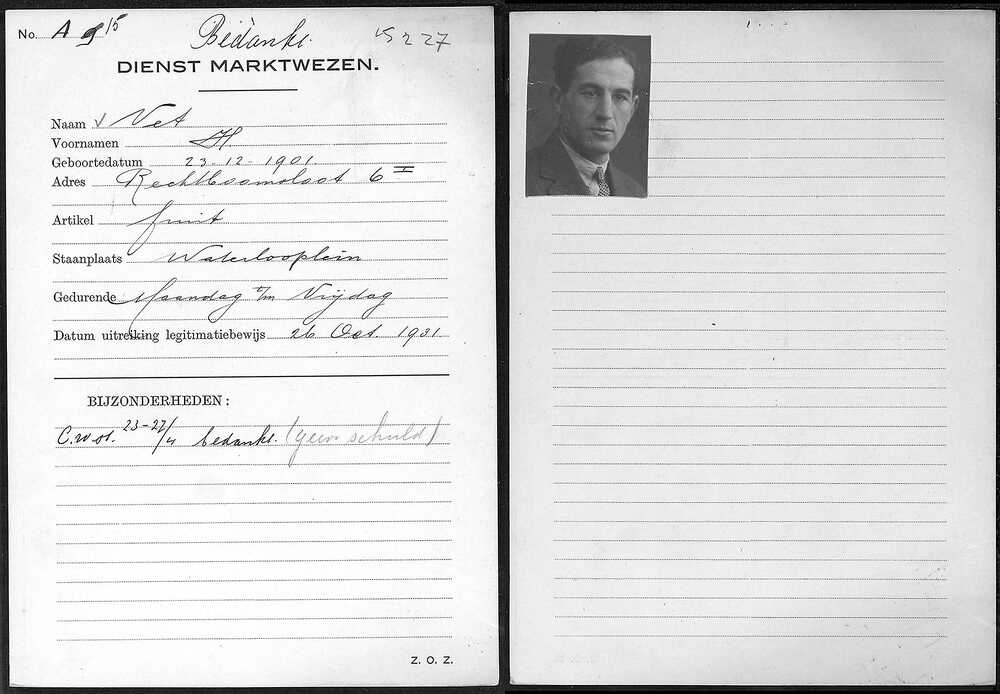 No. A 9 15
Bedankt.
15 2 27
DIENST MARKTWEZEN.
Naam √ Vet
Voornamen H
Geboortedatum 23-12-1901
Adres Rechtboomsloot 6 II
Artikel fruit
Staanplaats Waterlooplein
Gedurende Maandag t/m Vrijdag
Datum uitreiking legitimatiebewijs 26 Oct. 1931
BIJZONDERHEDEN:
23-27/4 bedankt. (geen schuld)
Z. O. Z.